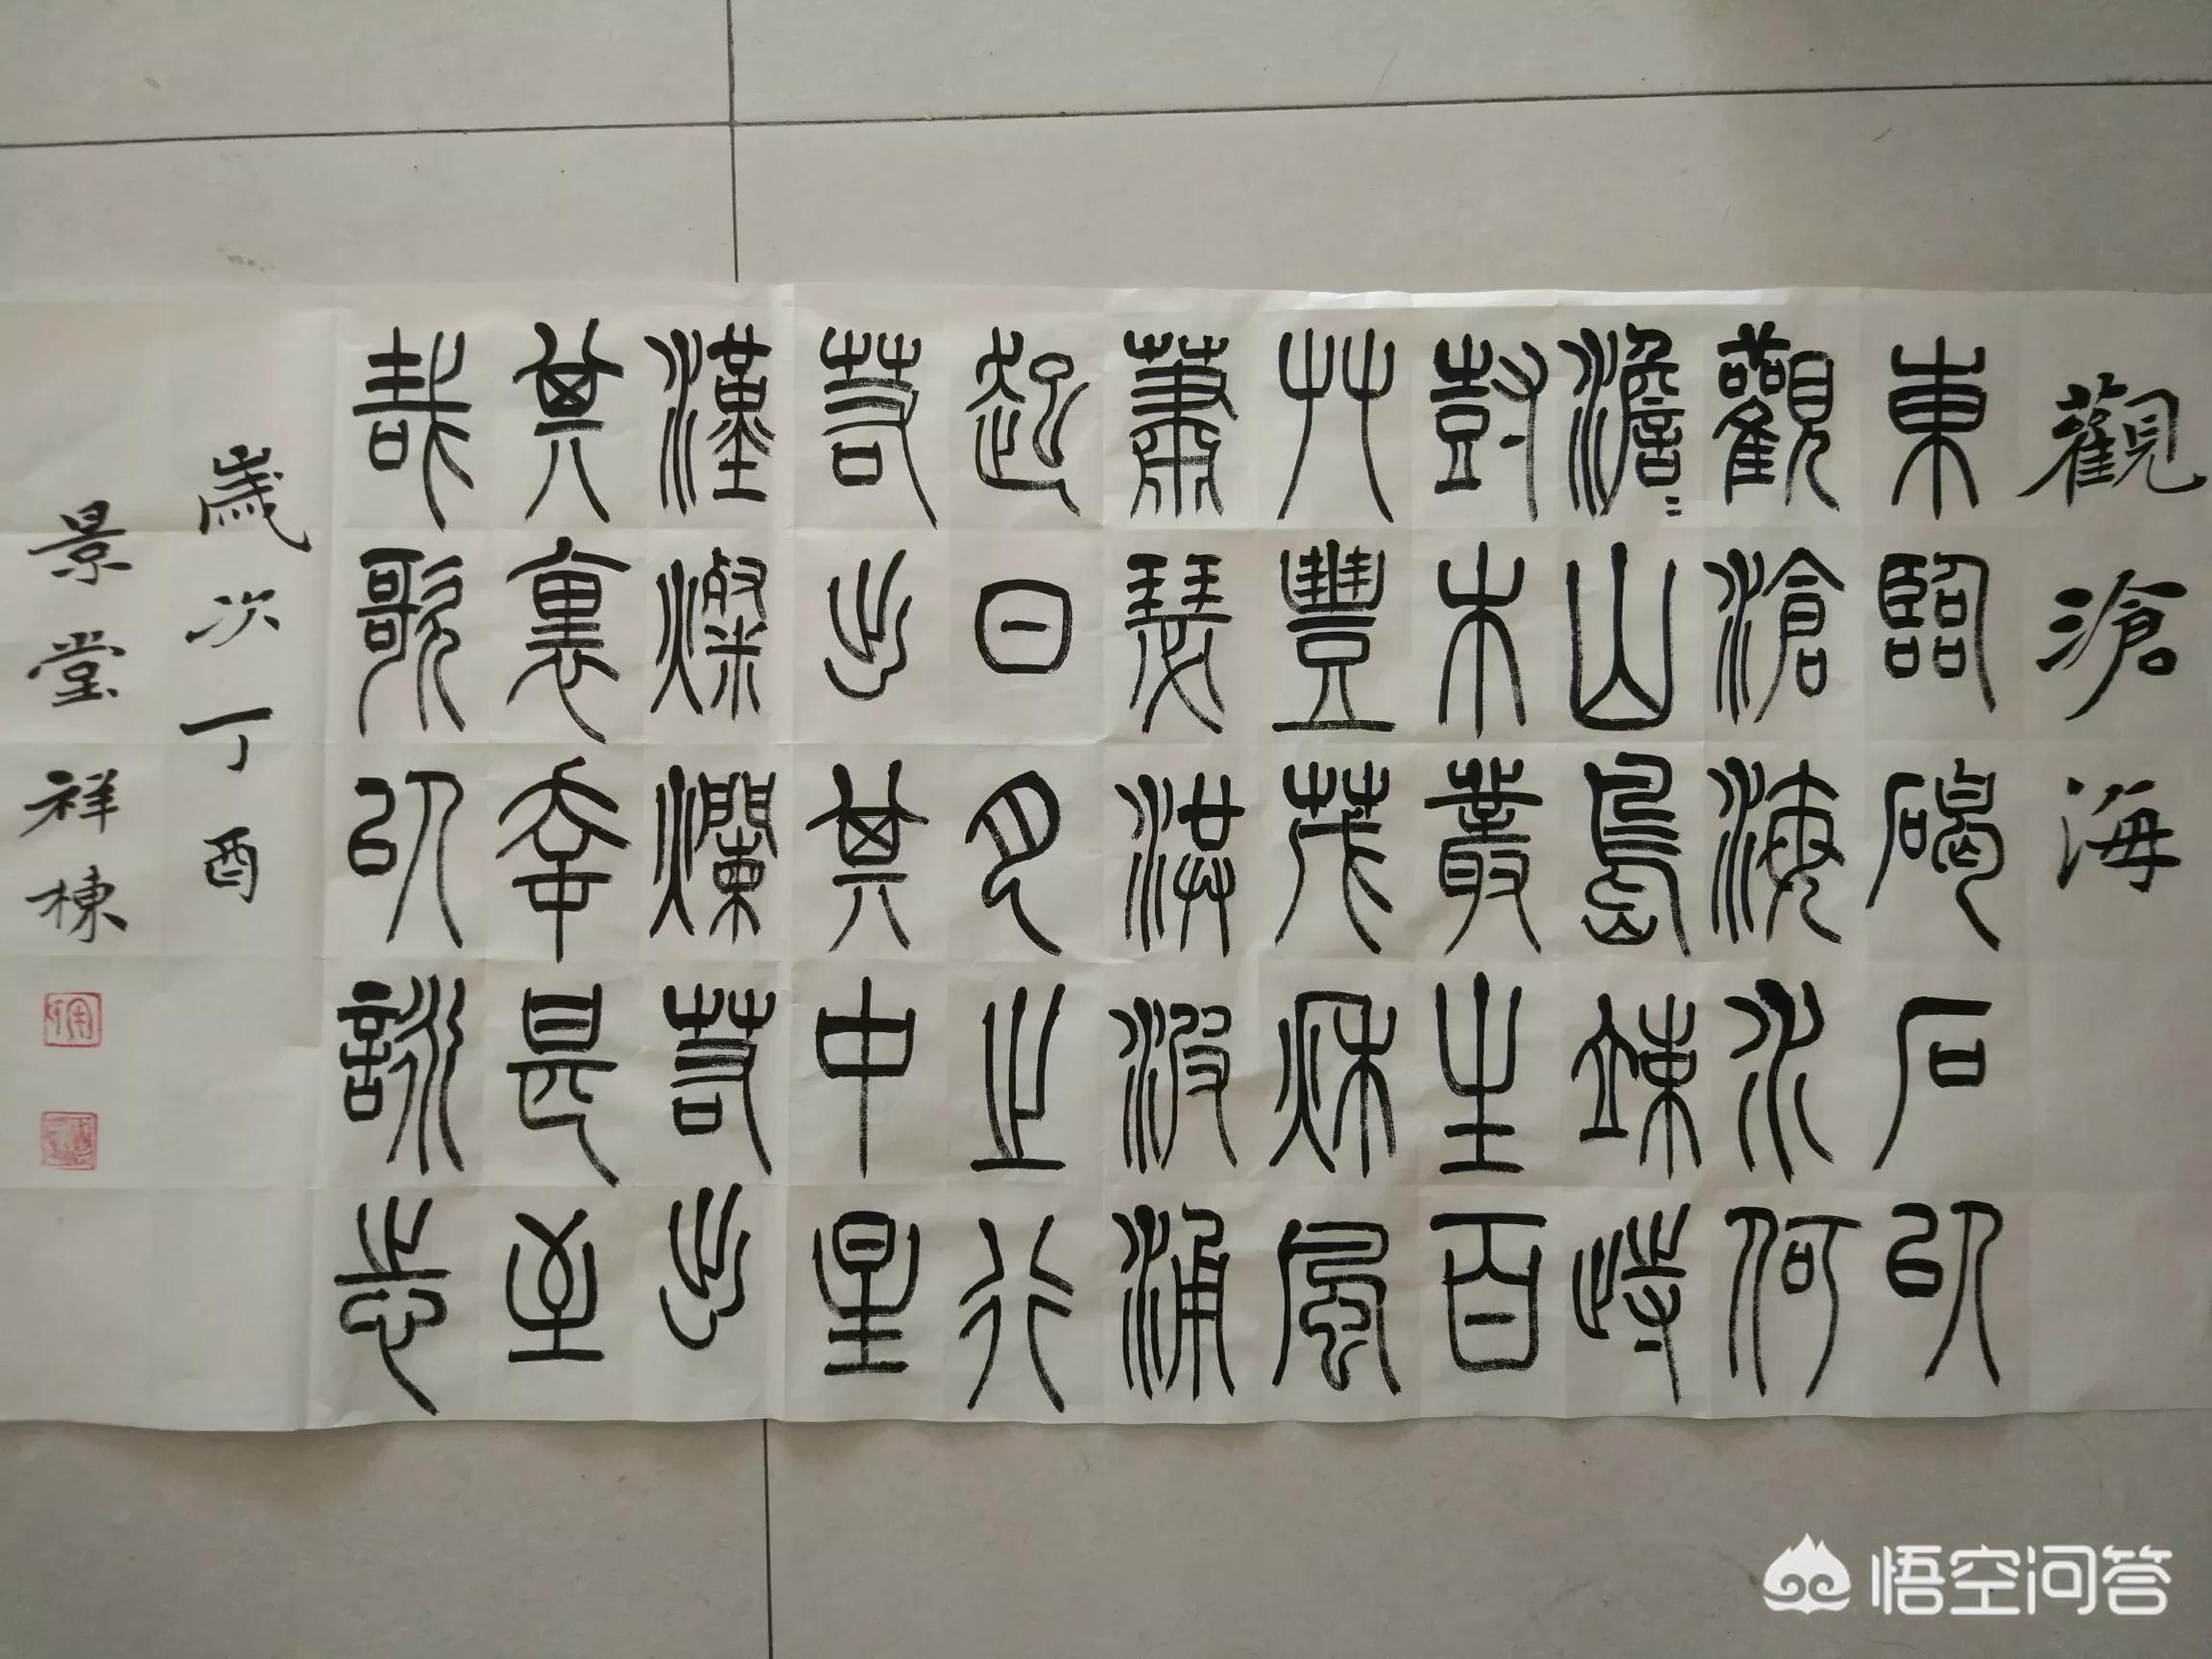 觀滄海
東臨碣石以
觀滄海水何
澹〻山島竦峙
尌木叢生百
艸豐茂秋風
蕭瑟洪波涌
起日月之行
若出其中星
漢燦爛若出
其裏幸甚至
哉歌以詠志
歲次丁酉
景堂祥棟
悟空问答